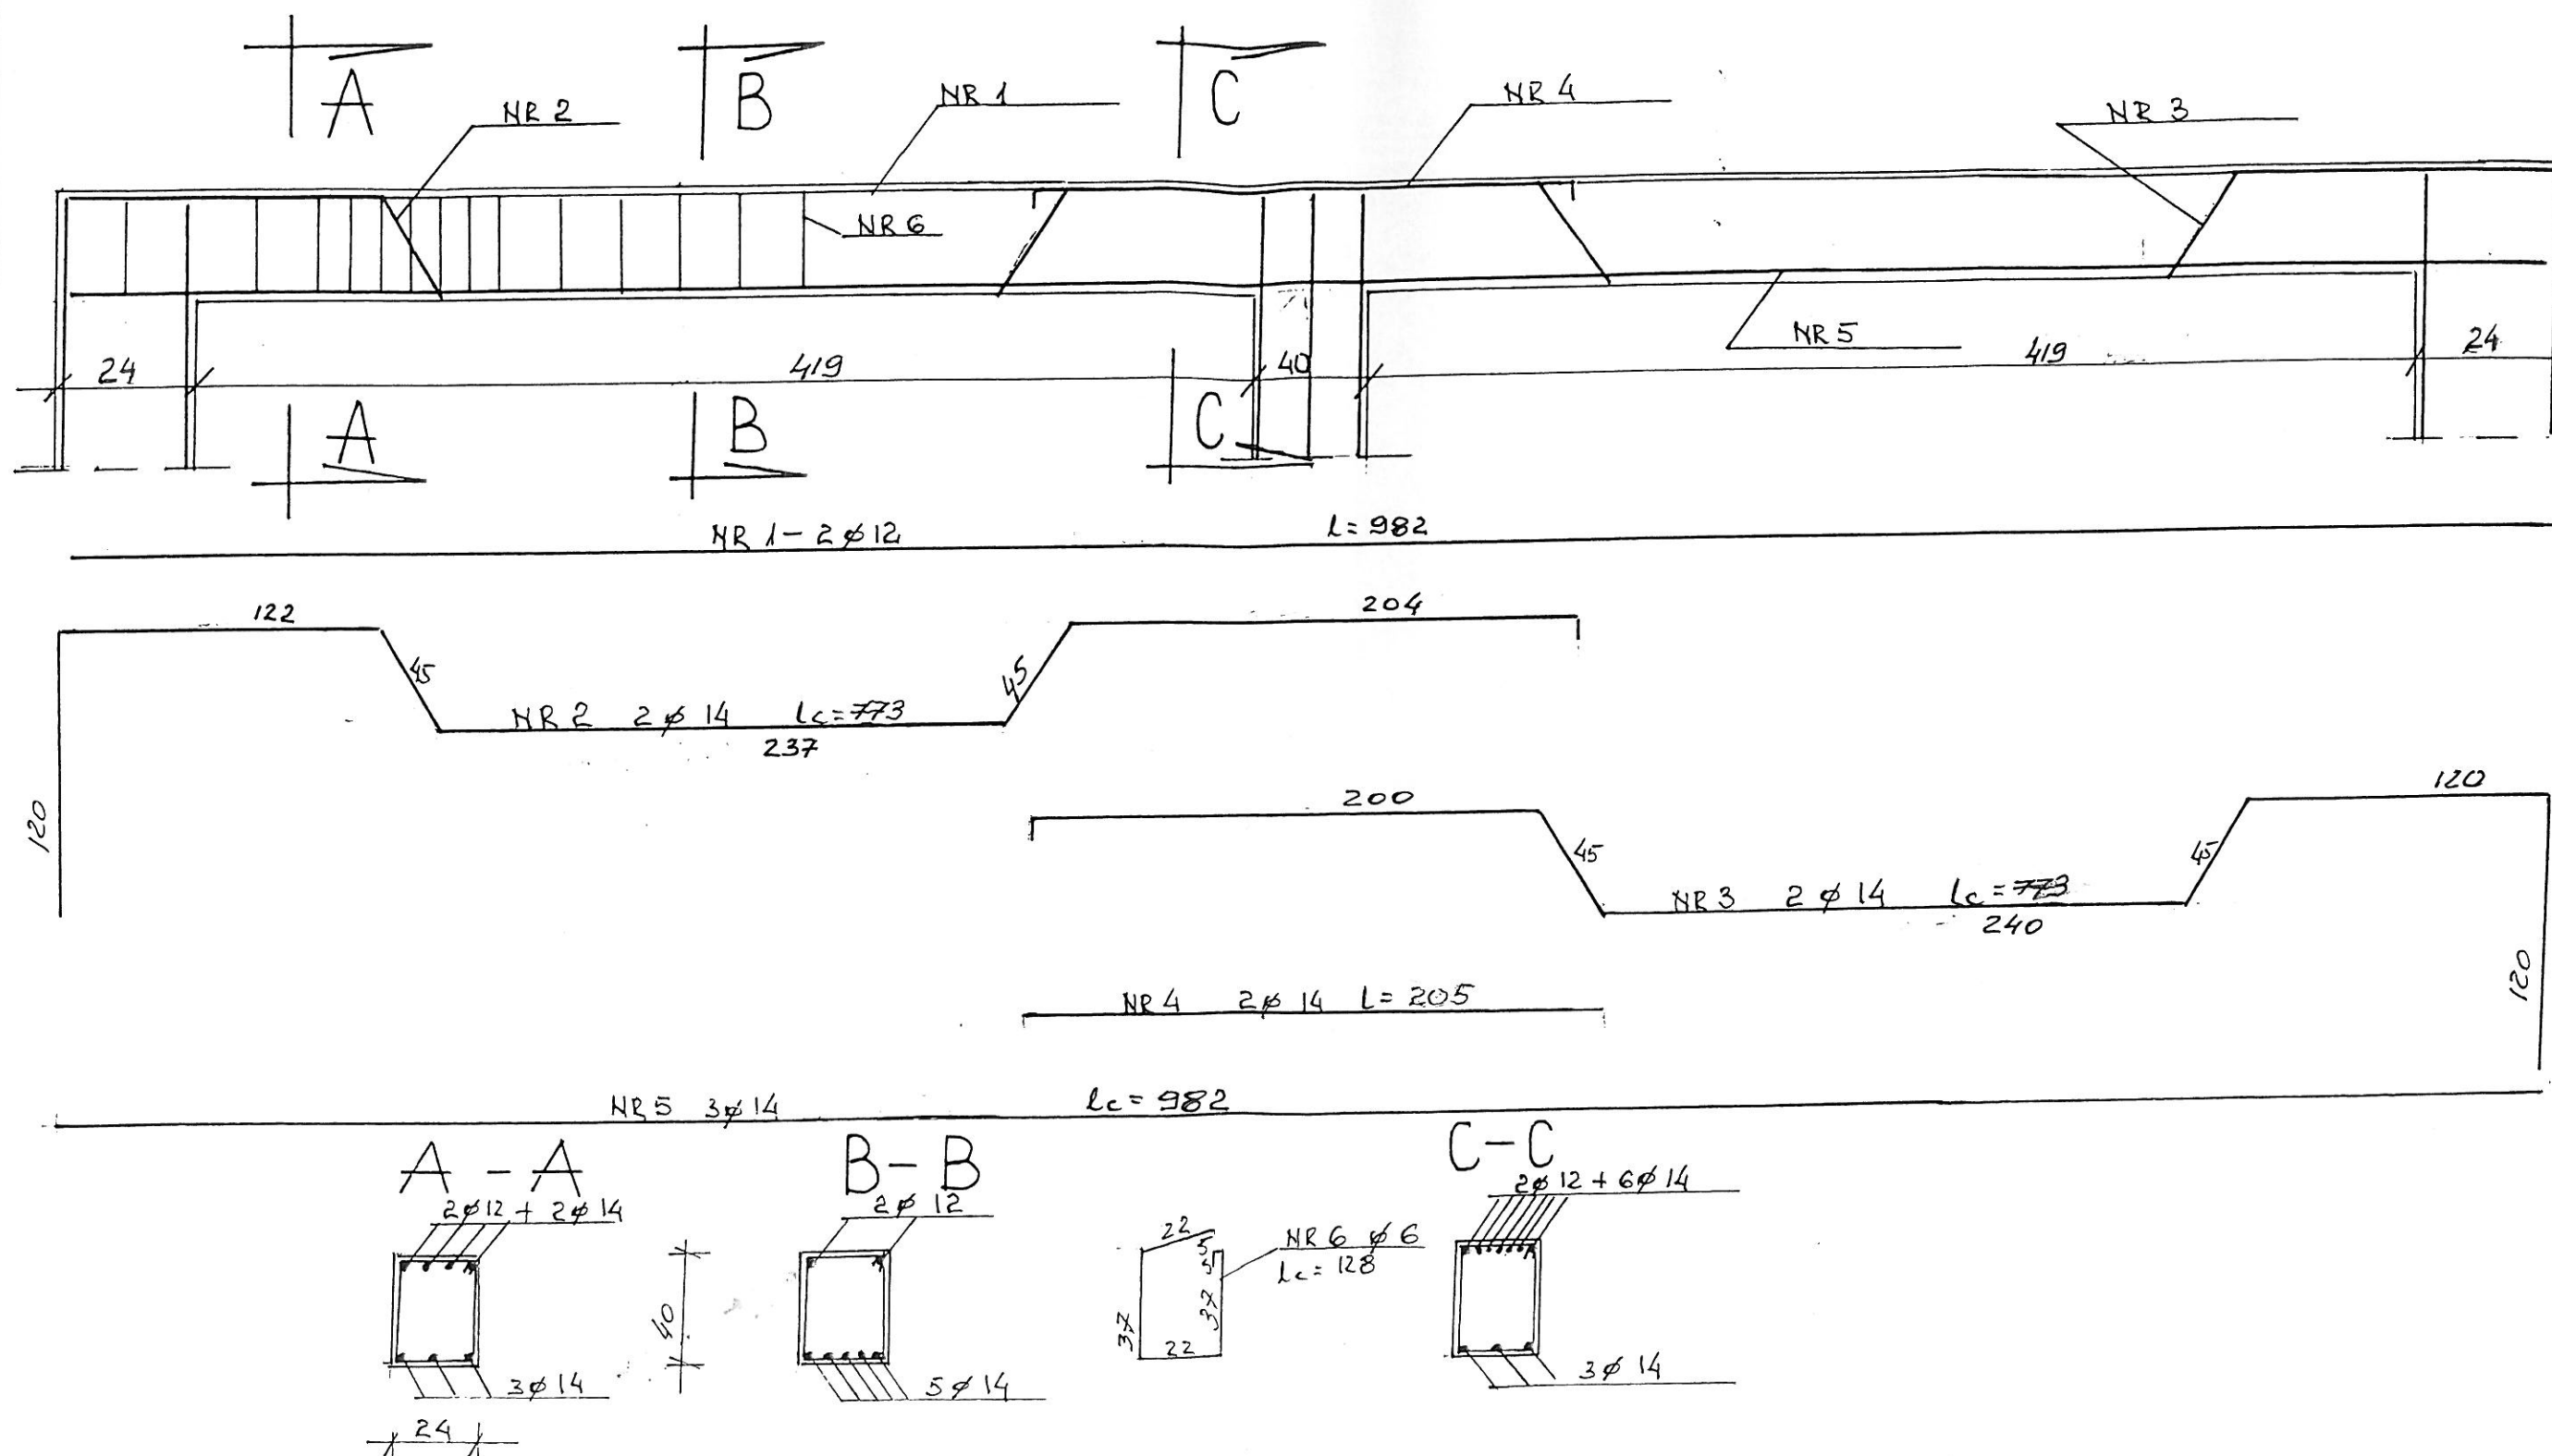 A B C
NR 2 NR 1 NR 4 NR 3
NR 6
NR 5
24 419 40 419 24
A B C
NR 1 - 2 ø 12 l = 982
122 204
45 45
NR 2 2 ø 14 lc = 773
237
120
200 120
45 45
NR 3 2 ø 14 lc = 773
240
120
NR 4 2 ø 14 L = 205
NR 5 3 ø 14 lc = 982
A - A B - B C - C
2 ø 12 + 2 ø 14 2 ø 12 2 ø 12 + 6 ø 14
22 5 NR 6 ø 6
5 lc = 128
40 37 37
22
3 ø 14 5 ø 14 3 ø 14
24